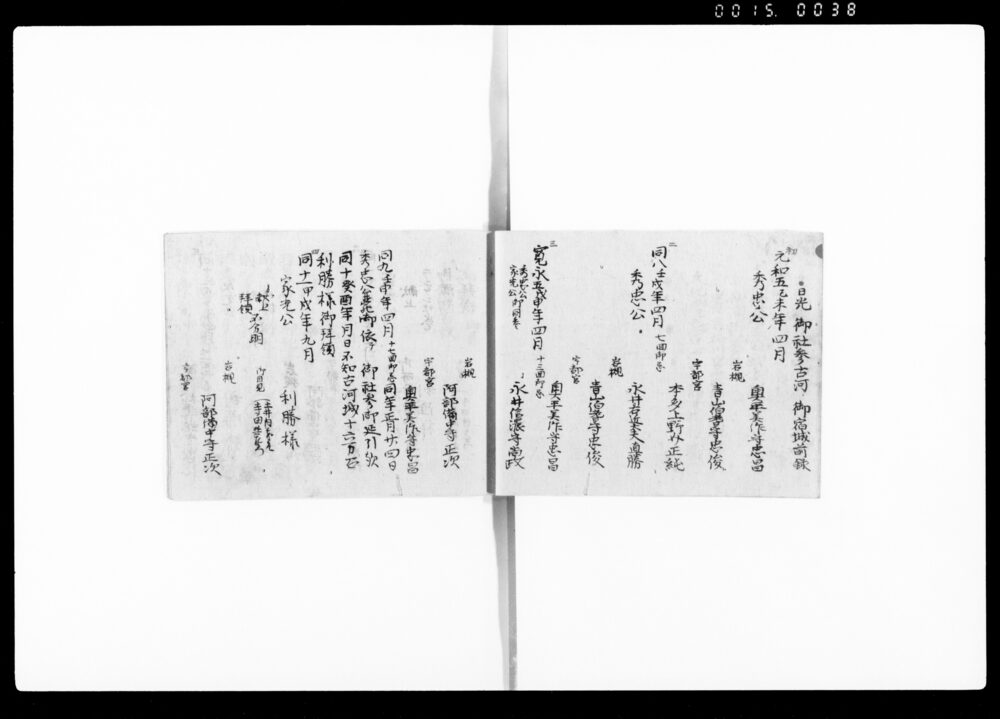 0015.0038
日光 御社参古河 御宿城前録
初
元和五己未年四月
秀忠公
奥平美作守忠昌
岩槻
青山伯耆守忠俊
宇都宮
本多上野介正純
二
同八壬戌年四月 七
秀忠公
永井右近大夫直勝
岩槻
青山伯耆守忠俊
宇都宮
奥平美作守忠昌
三
寛永五戊申年四月 十三
秀忠公
家光公
永井信濃守尚政
岩槻
阿部備中守正次
宇都宮
奥平美作守忠昌
同九壬申年四月 十七 同年正月廿四日
秀忠公 御 依 御社参御延引
同十癸酉年月日不知古河城十六万石
利勝様御拝領
四
同十一甲戌年九月
家光公
利勝様
献上
拝領 不分明
御目見
岩槻
阿部備中守正次
宇都宮